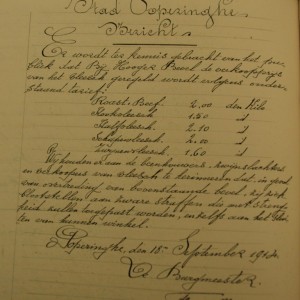 Stad Poperinghe
Bericht
Er wordt ter kennis gebracht van het pu-
bliek dat bij Hooger Bevel de verkoopprys
van het vleesch geregeld wordt volgens onder-
staand tarief:
Roast-Beef 2,00 den Kilo
Kerkvleesch 1.80 d
Kalfvleesch 2.10 d
Schapevleesch 2.00 d
Zwynevleesch 1.60 d
Wij houden aan de beenhouwers, zwijnslachters
en verkoopers van vleesch te herinneren dat, in geval
van overtreding van bovenstaande bevel, zij zich
blootstellen aan zware straffen die met streng-
heid zullen toegepast worden, en zelfs aan het sluiten
van hunnen winkel.
Poperinghe, den 15n September 1914
De Burgmeester